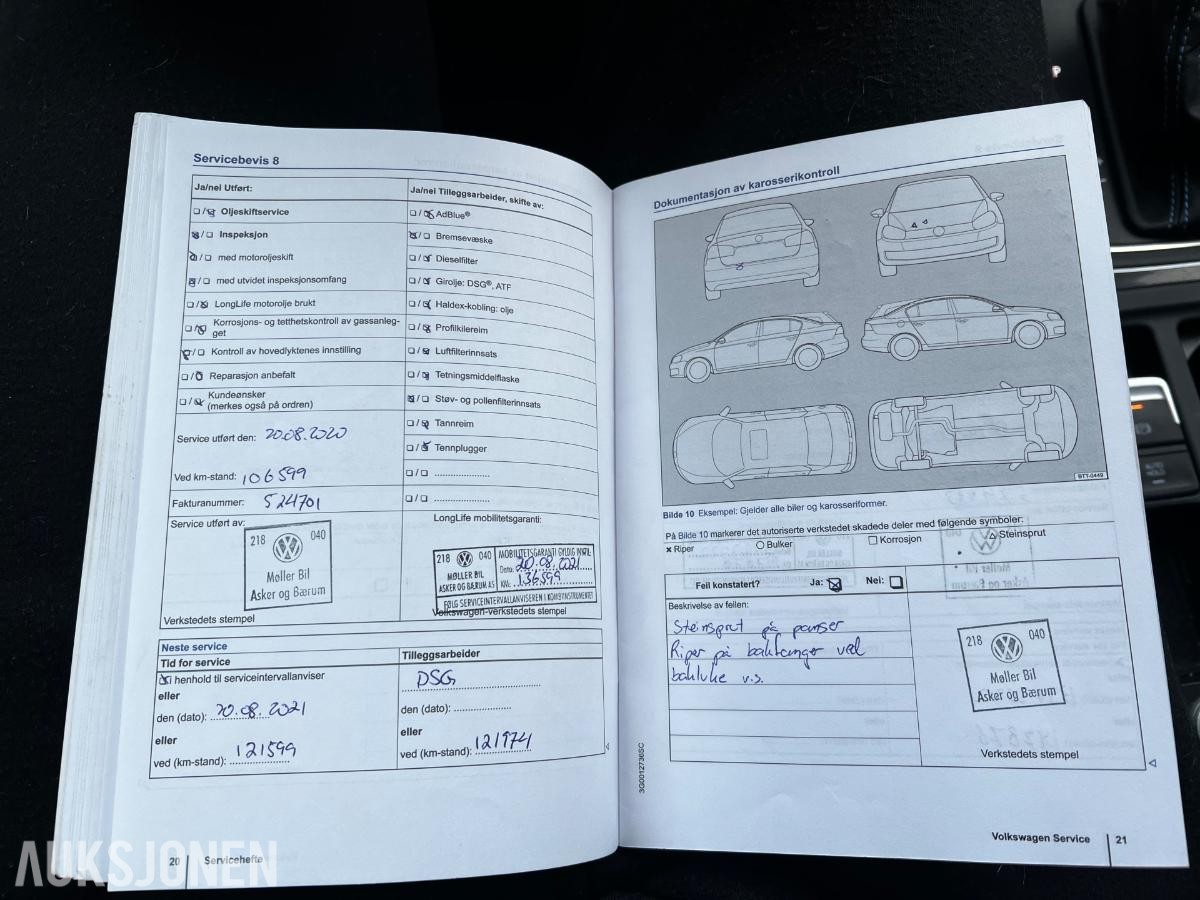 Servicebevis 8
Ja/nei Utført:
Ja/nei Tilleggsarbeider, skifte av:
Oljeskiftservice
Inspeksjon
med motoroljeskift
med utvidet inspeksjonsomfang
LongLife motorolje brukt
Korrosjons- og tetthetskontroll av gassanleg-
get
Kontroll av hovedlyktenes innstilling
Reparasjon anbefalt
Kundeønsker
(merkes også på ordren)
AdBlue®
Bremsevæske
Dieselfilter
Girolje: DSG®, ATF
Haldex-kobling: olje
Profilkilereim
Luftfilterinnsats
Tetningsmiddelflaske
Støv- og pollenfilterinnsats
Tannreim
Tennplugger
Service utført den: 20.08.2020
Ved km-stand: 106599
Fakturanummer: 524701
Service utført av:
218 040
Møller Bil
Asker og Bærum
Verkstedets stempel
LongLife mobilitetsgaranti:
218 040
MØLLER BIL
ASKER OG BÆRUM AS
MOBILITETSGARANTI GYLDIG INNTIL
Dato: 20.08.2021
KM: 136599
FØLG SERVICEINTERVALLANVISEREN I KOMBIINSTRUMENTET
Volkswagen-verkstedets stempel
Neste service
Tid for service
Tilleggsarbeider
I henhold til serviceintervallanviser
eller
den (dato): 20.08.2021
eller
ved (km-stand): 121599
DSG
den (dato):
eller
ved (km-stand): 121974
20 Servicehefte
Dokumentasjon av karosserikontroll
BTT-0449
Bilde 10 Eksempel: Gjelder alle biler og karosseriformer.
På Bilde 10 markerer det autoriserte verkstedet skadede deler med følgende symboler:
Riper
Bulker
Korrosjon
Steinsprut
Feil konstatert? Ja: Nei:
Beskrivelse av feilen:
Steinsprut på panser
Riper på bakfanger ved
bakluke v.s.
218 040
Møller Bil
Asker og Bærum
Verkstedets stempel
3G0012736SC
Volkswagen Service 21
P
AUKSJONEN